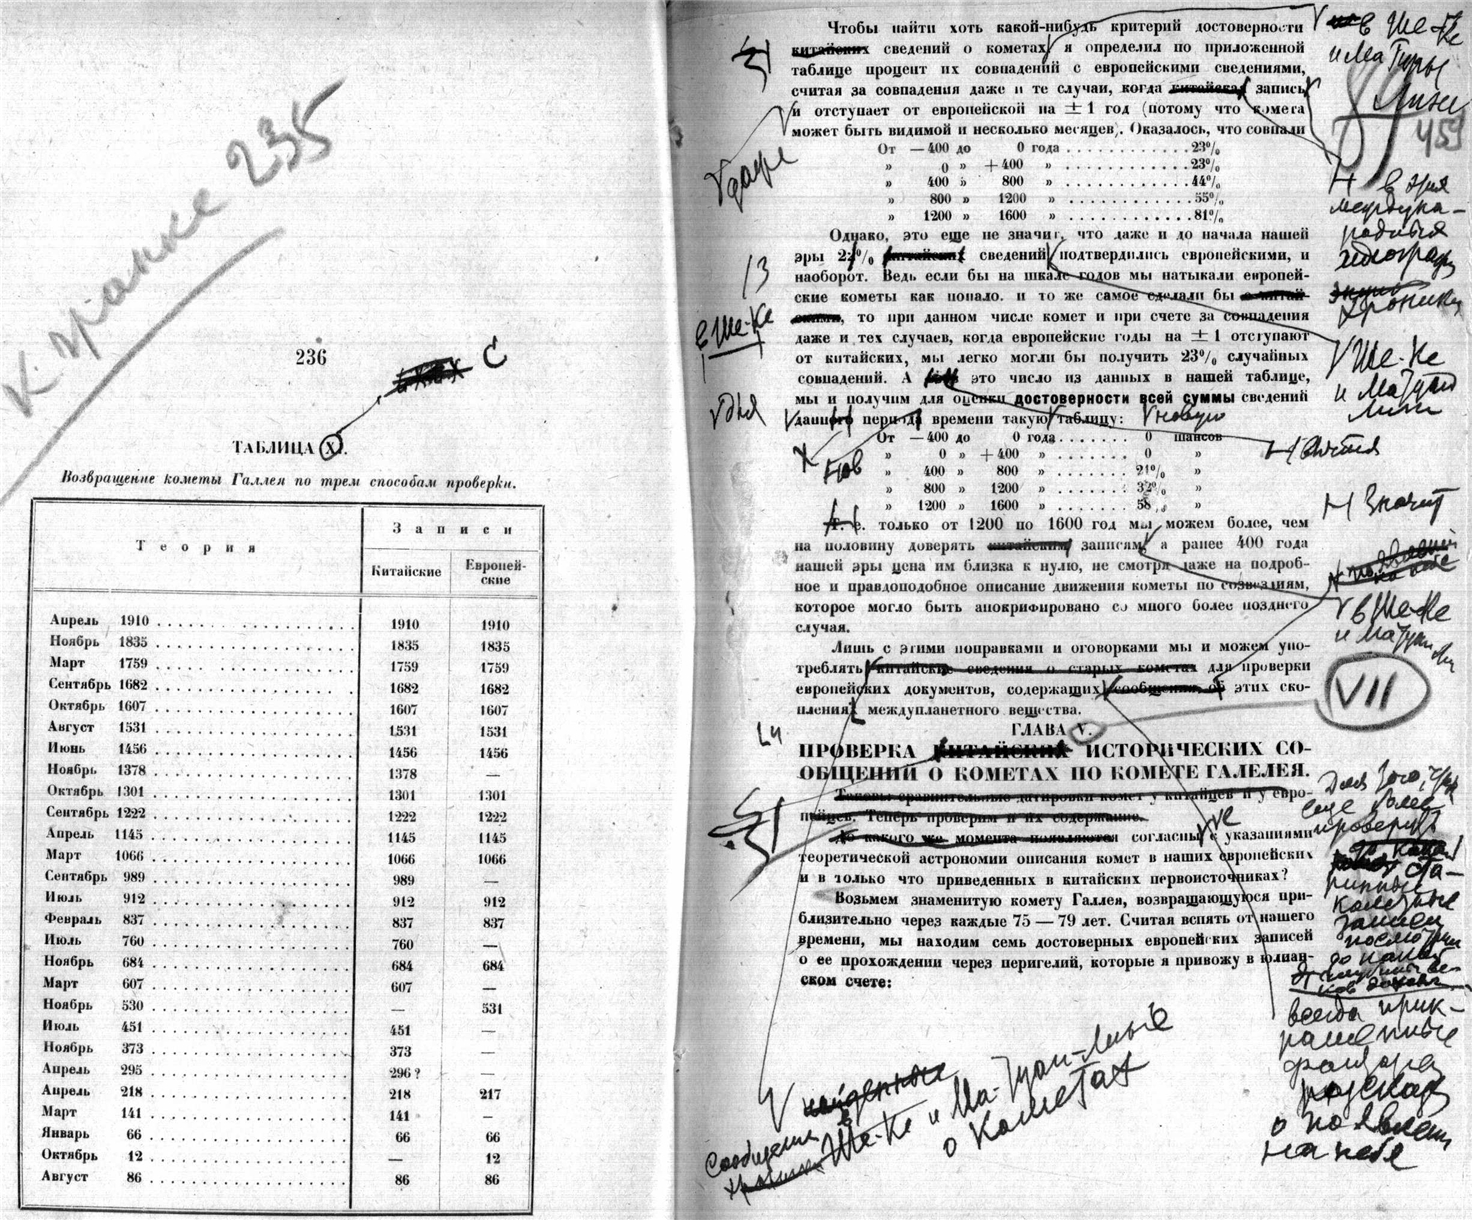 К гранке 235
236
С
ТАБЛИЦА XI.
Возвращение кометы Галлея по трем способам проверки.
Теория
Записи
Китайские
Европей-
ские
Апрель 1910 . . . 1910 1910
Ноябрь 1835 . . . 1835 1835
Март 1759 . . . 1759 1759
Сентябрь 1682 . . . 1682 1682
Октябрь 1607 . . . 1607 1607
Август 1531 . . . 1531 1531
Июнь 1456 . . . 1456 1456
Ноябрь 1378 . . . 1378 —
Октябрь 1301 . . . 1301 1301
Сентябрь 1222 . . . 1222 1222
Апрель 1145 . . . 1145 1145
Март 1066 . . . 1066 1066
Сентябрь 989 . . . 989 —
Июль 912 . . . 912 912
Февраль 837 . . . 837 837
Июль 760 . . . 760 —
Ноябрь 684 . . . 684 684
Март 607 . . . 607 —
Ноябрь 530 . . . — 531
Июль 451 . . . 451 —
Ноябрь 373 . . . 373 —
Апрель 295 . . . 296 ? —
Апрель 218 . . . 218 217
Март 141 . . . 141 —
Январь 66 . . . 66 66
Октябрь 12 . . . — 12
Август 86 . . . 86 86
Чтобы найти хоть какой-нибудь критерий достоверности
китайских сведений о кометах, я определил по приложенной
таблице процент их совпадений с европейскими сведениями,
считая за совпадения даже и те случаи, когда китайская запись
и отступает от европейской на ± 1 год (потому что комета
может быть видимой и несколько месяцев). Оказалось, что совпали
От —400 до 0 года . . . 23%
» 0 » +400 » . . . 23%
» 400 » 800 » . . . 44%
» 800 » 1200 » . . . 55%
» 1200 » 1600 » . . . 81%
Однако, это еще не значит, что даже и до начала нашей
эры 23% китайских сведений подтвердились европейскими, и
наоборот. Ведь если бы на шкале годов мы натыкали европей-
ские кометы как попало. и то же самое сделали бы с китай-
скими, то при данном числе комет и при счете за совпадения
даже и тех случаев, когда европейские годы на ± 1 отступают
от китайских, мы легко могли бы получить 23% случайных
совпадений. А это число из данных в нашей таблице,
мы и получим для оценки достоверности всей суммы сведений
данного периода времени такую таблицу: новую
От —400 до 0 года . . . 0 шансов
» 0 » +400 » . . . 0 »
» 400 » 800 » . . . 21% »
» 800 » 1200 » . . . 32% »
» 1200 » 1600 » . . . 58% »
Т. е. только от 1200 по 1600 год мы можем более, чем
на половину доверять китайским записям, а ранее 400 года
нашей эры цена им близка к нулю, не смотря даже на подроб-
ное и правдоподобное описание движения кометы по созвездиям,
которое могло быть апокрифировано со много более позднего
случая.
Лишь с этими поправками и оговорками мы и можем упо-
треблять китайские сведения о старых кометах для проверки
европейских документов, содержащих сообщения об этих ско-
плениях междупланетного вещества.
ГЛАВА V.
ПРОВЕРКА КИТАЙСКИХ ИСТОРИЧЕСКИХ СО-
ОБЩЕНИЙ О КОМЕТАХ ПО КОМЕТЕ ГАЛЕЛЕЯ.
Таковы сравнительные датировки комет у китайцев и у евро-
пейцев. Теперь проверим и их содержание.
До какого же момента появляются согласны с указаниями
теоретической астрономии описания комет в наших европейских
и в только что приведенных в китайских первоисточниках?
Возьмем знаменитую комету Галлея, возвращающуюся при-
близительно через каждые 75 — 79 лет. Считая вспять от нашего
времени, мы находим семь достоверных европейских записей
о ее прохождении через перигелий, которые я привожу в юлиан-
ском счете:
в Ше-Ке
и Ма Туан
Лине
89
459
в Ше-Ке
V Ше-Ке
и Ма Туан
Лини
Значит
в Ше-Ке
и Ма Туан Ли
VII
Для того, чтоб
еще более
проверить
кометные
записи
всегда прик-
рашенные
о появлен
на небе
найденные
Сообщения в Ше-Ке и Ма-Туан-Лине
о кометах